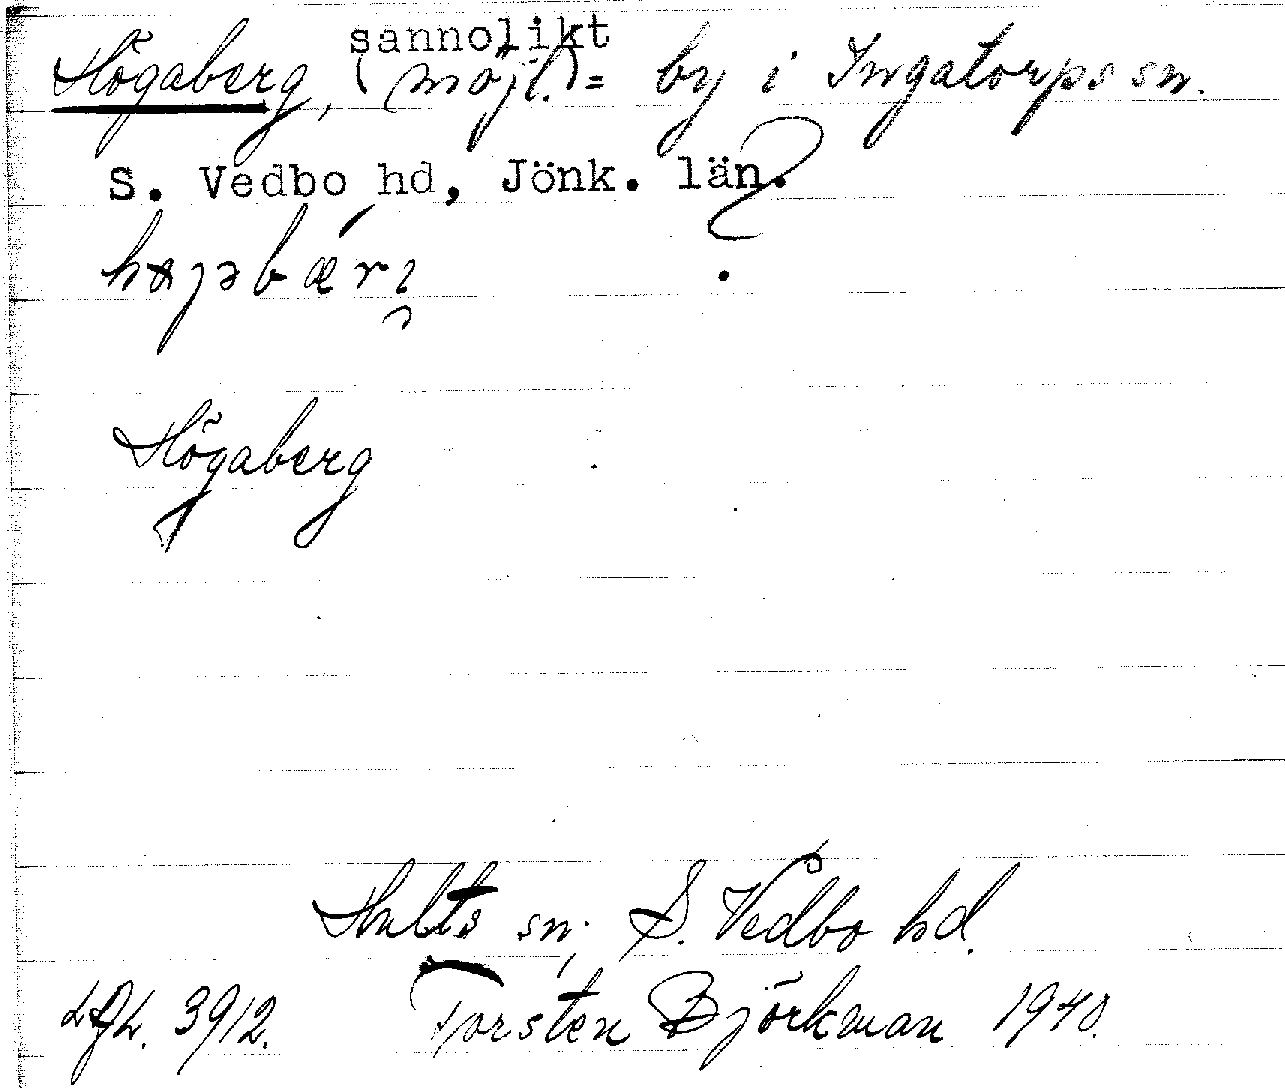 sannolikt
Högaberg, (möjl.) = by i Ingatorps sn.
S. Vedbo hd, Jönk. län. ?
Högaberg
Hults sn, S. Vedbo hd.
3912. Torsten Björkman 1940.